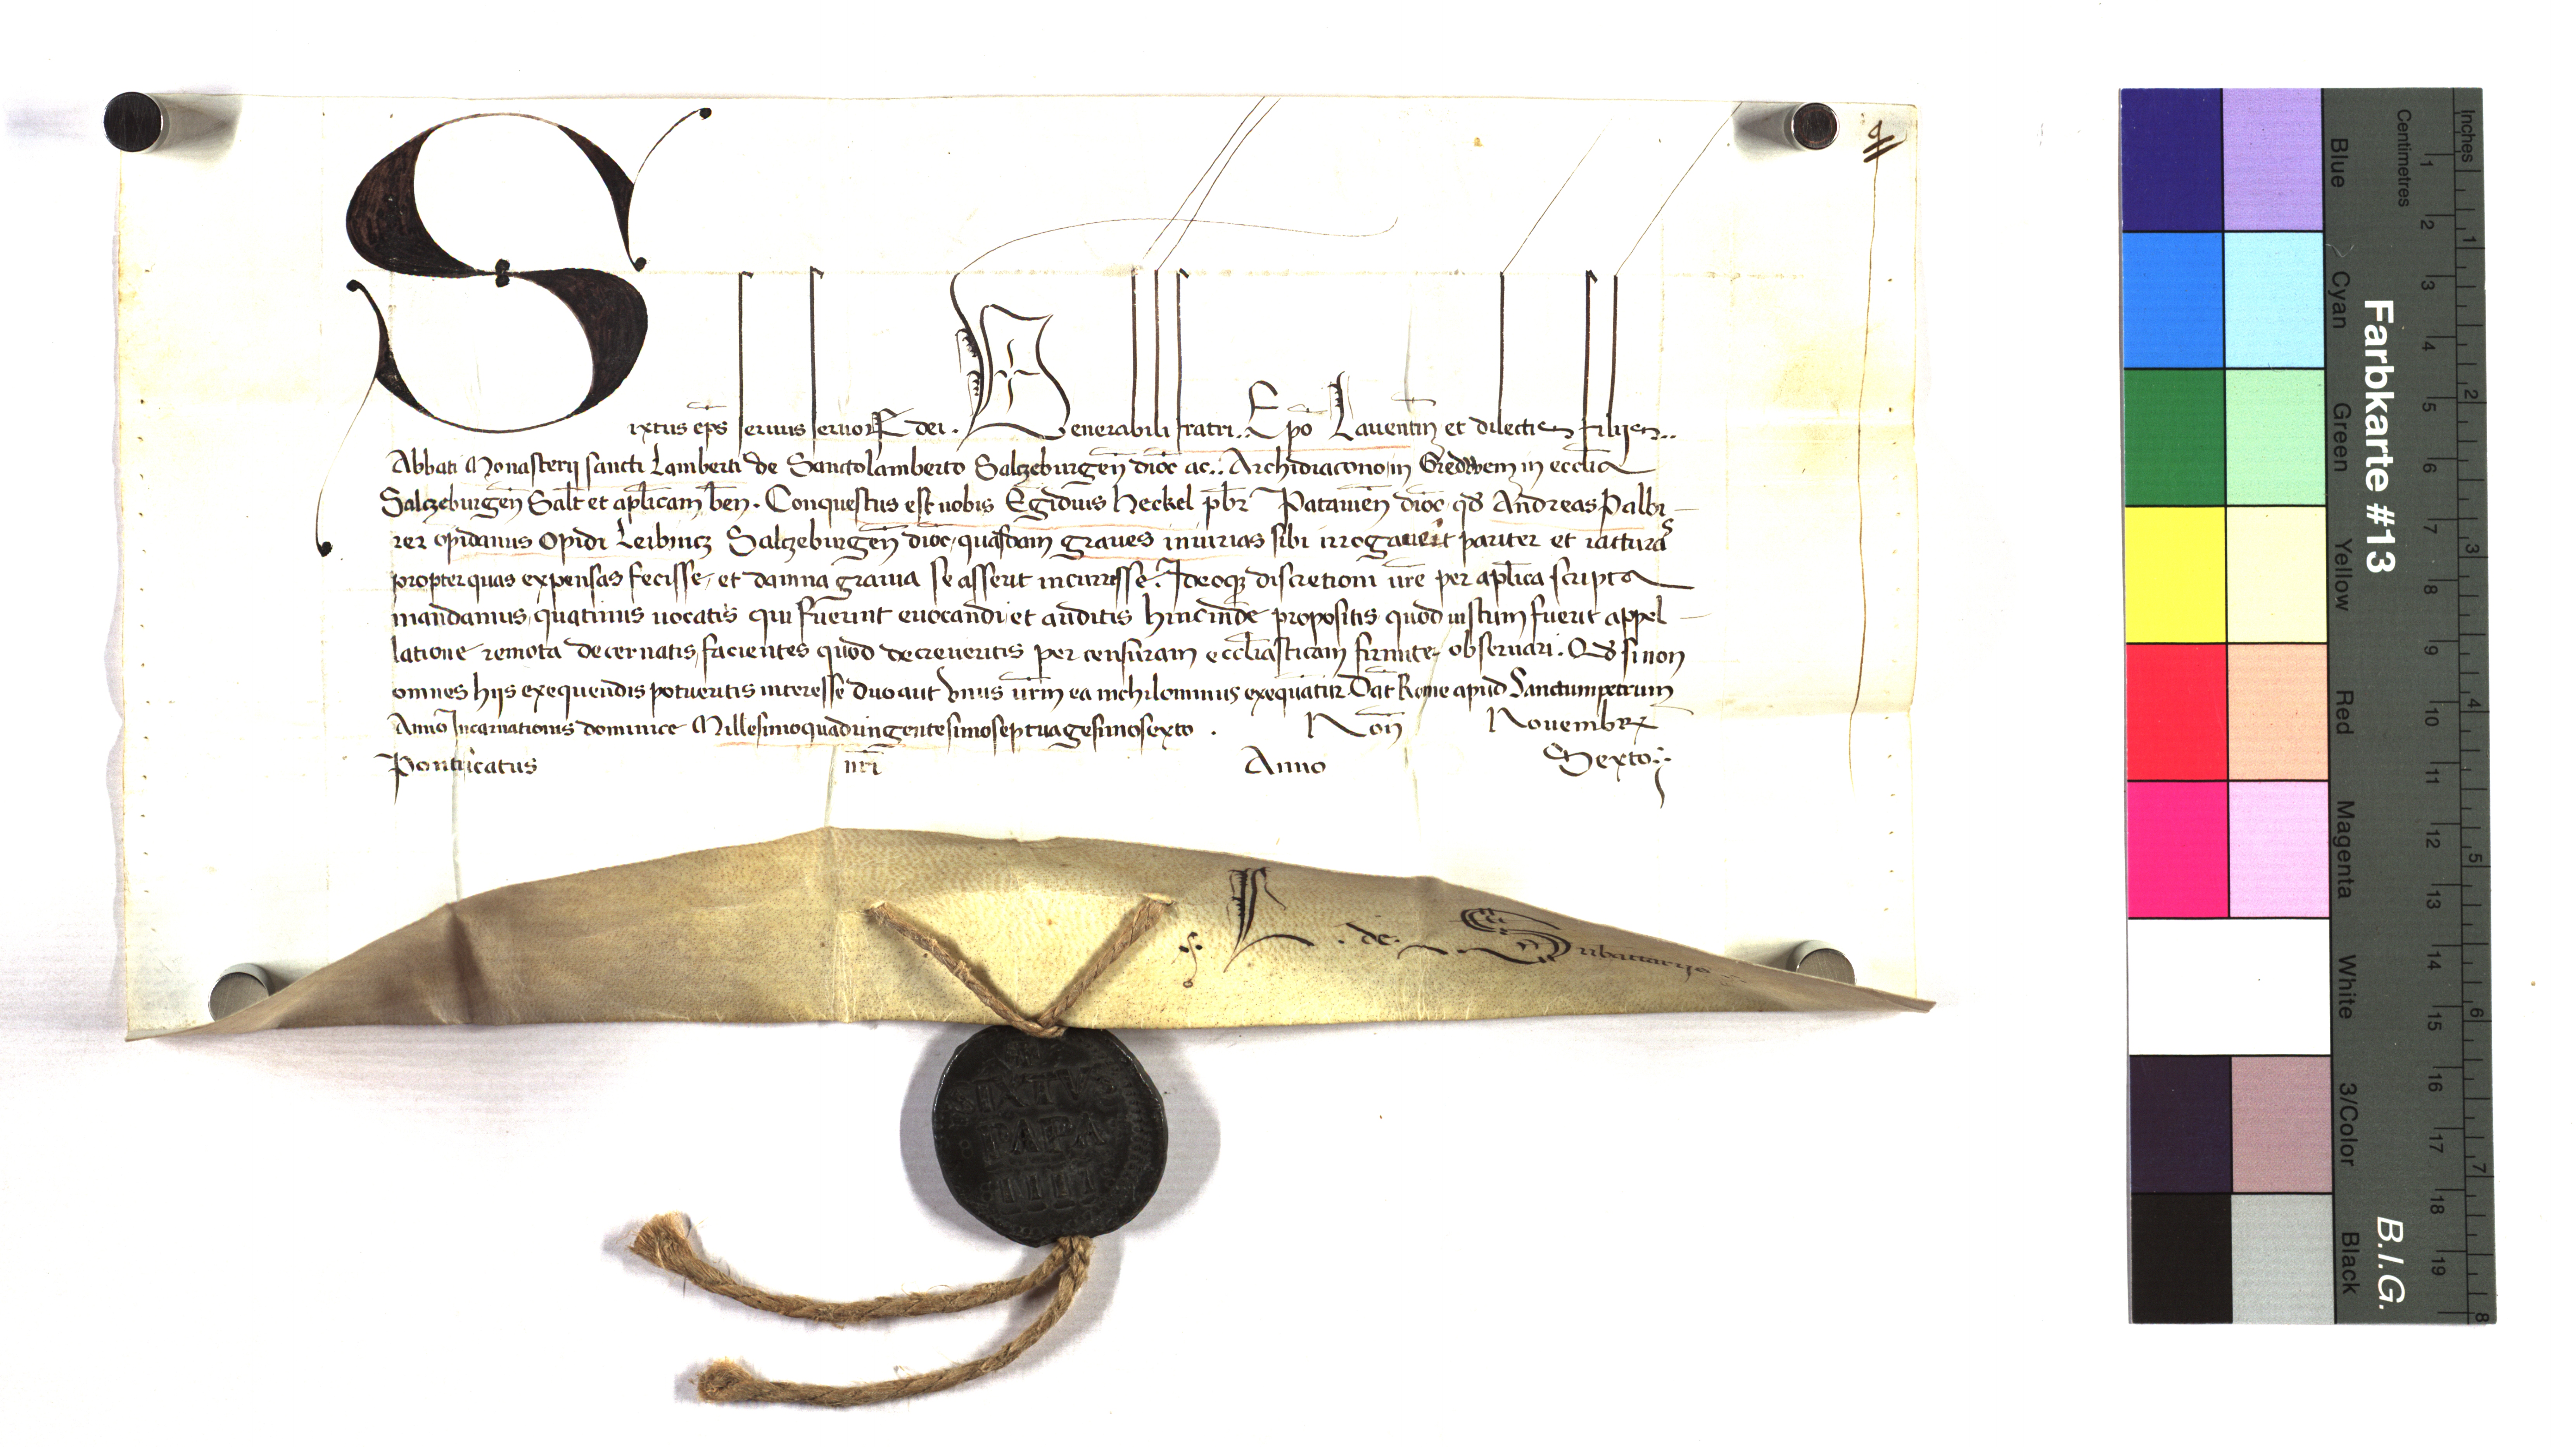 Sixtus ep̄s seruus seruoꝝ dei . Venerabili fratri .. Ep̄o Lauentin̄ et dilectis filijs ..
Abbati Monasterij sancti Lamberti de Sanctolamberto Salczeburgen̄ dioc̄ ac .. Archidiacono in Gredwein in eccl̄ia
Salczeburgen̄ Salt̄ et apl̄icam ben̄ . Conquestus est nobis Egidius Heckel pb̄r Patauien̄ dioc̄ qd̄ Andreas Palbi
rer opidanus Opidi Leibnicz Salczeburgen̄ dioc̄, quasdam graues iniurias sibi irrogauerit pariter et iacturas
propter quas expensas fecisse, et damna grauia se asserit incurrisse. Ideoqꝫ discretioni ūre per apl̄ica scripta
mandamus, quatinus uocatis qui fuerint euocandi et auditis hincinde propositis quod iustum fuerit appel
latione remota decernatis, facientes quod decreueritis per censuram eccl̄iasticam firmiter obseruari . Qd̄ si non
omnes hijs exequendis potueritis interesse duo aut vnus ūrm̄ ea nichilominus exequatur. Dat̄ Rome apud Sanctumpetrum
Anno Incarnationis dominice Millesimoquadringentesimoseptuagesimosexto . Non̄ Novembrꝫ
Pontificatus nr̄i Anno Sexto :
L . de . Subactarijs
SIXTVS
PAPA
IIII
Farbkarte #13
B.I.G.
Inches 1 2 3 4 5 6 7 8
Centimetres 1 2 3 4 5 6 7 8 9 10 11 12 13 14 15 16 17 18 19
Blue Cyan Green Yellow Red Magenta White 3/Color Black